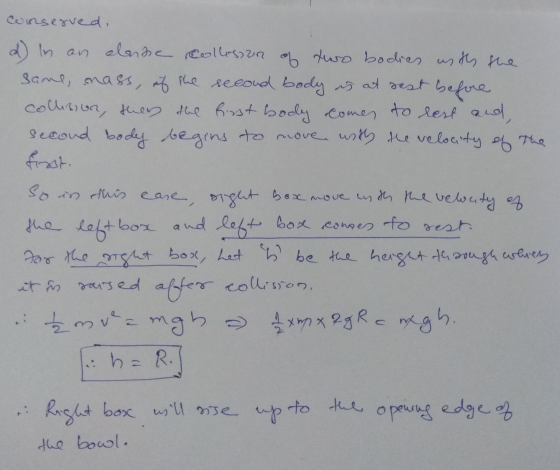 conserved.
d) In an elastic collision of two bodies with the
same, mass, if the second body is at rest before
collision, then the first body comes to rest and,
second body begins to move with the velocity of the
first.
So in this case, right box move with the velocity of
the left box and left box comes to rest.
For the right box, Let 'h' be the height through which
it is raised after collision.
∴ ½ m v² = mgh ⇒ ½ × m × 2gR = mgh.
∴ h = R.
∴ Right box will rise up to the opening edge of
the bowl.